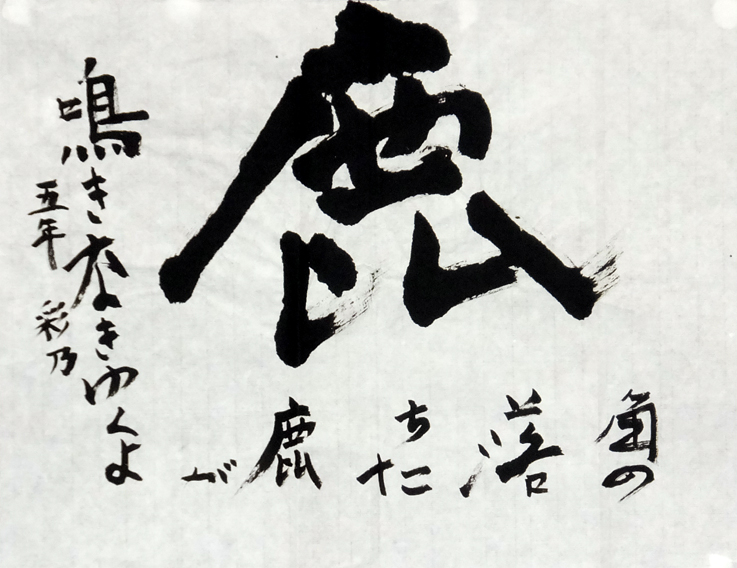 鹿
角の
落
ちた
鹿
が
鳴きなきゆくよ
五年 彩乃